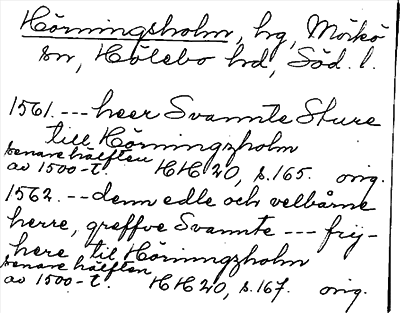 Hörningsholm, hg, Mörkö
sn, Hölebo hd, Söd. l.
1561. --- heer Svannte Sture
till Hörningzholm
senare hälften
av 1500-t. HH 20, s. 165. orig.
1562. -- denn edle och velbårne
herre, greffve Svannte --- frij-
here till Hörningzholm
senare hälften
av 1500-t. HH 20, s. 167. orig.